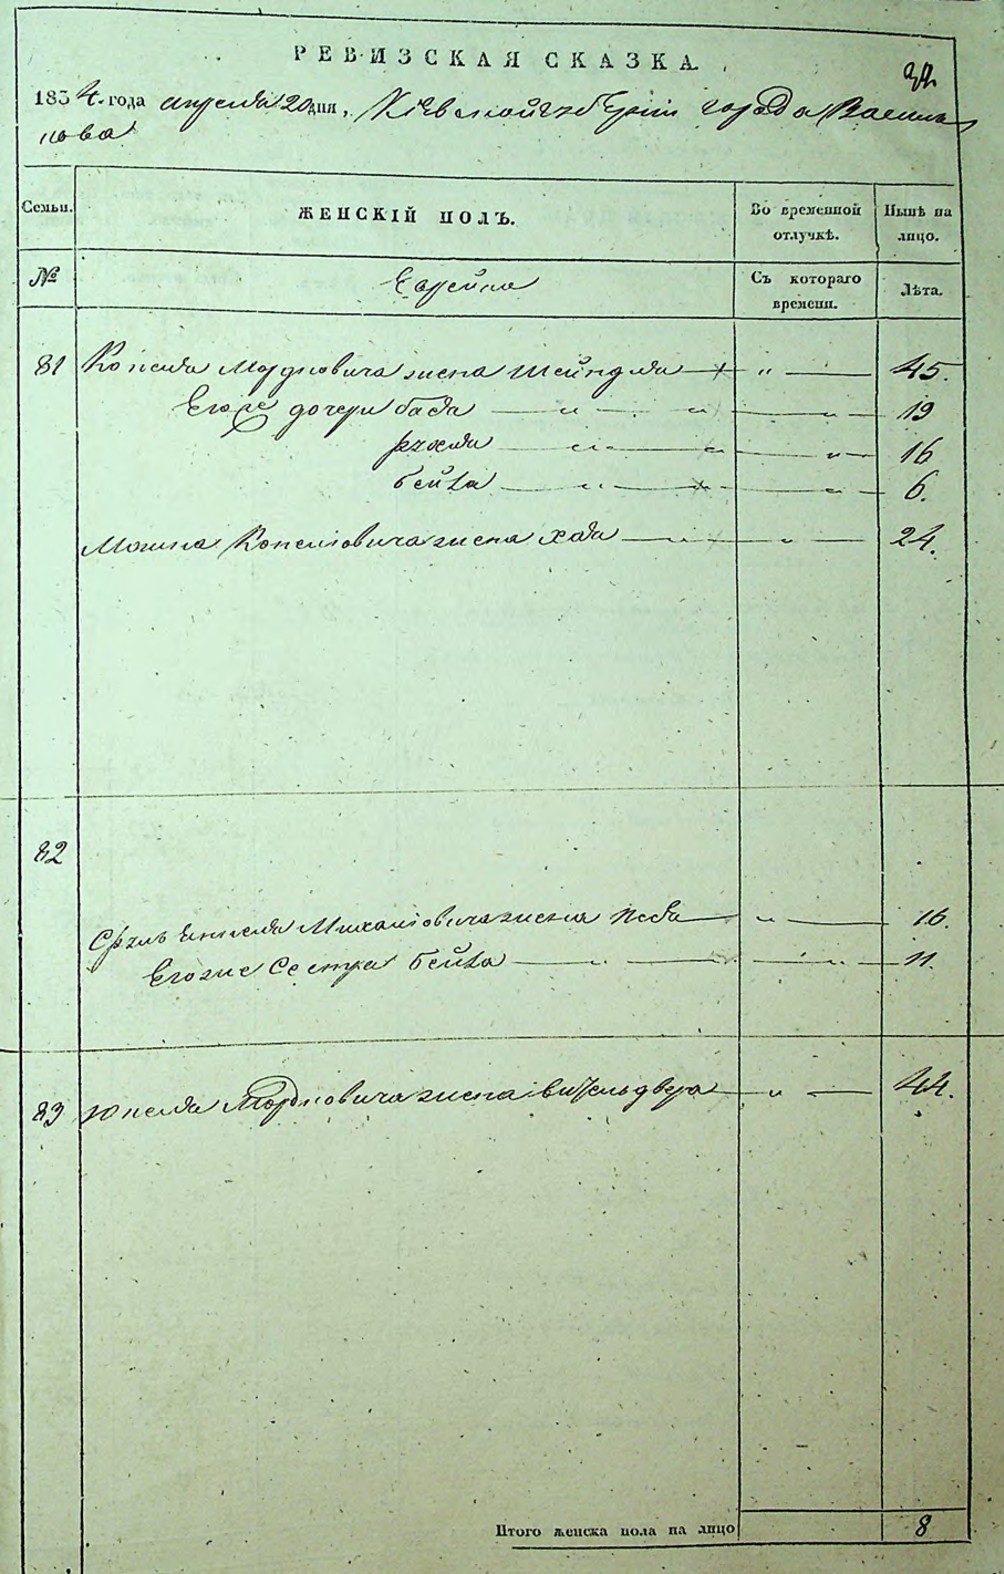 РЕВИЗСКАЯ СКАЗКА.
1834 года апреля 20 дня, Кіевской губерніи города Василь
кова
Семьи. ЖЕНСКІЙ ПОЛЪ. Во временной отлучкѣ. Нынѣ на лицо.
№ Еврейки Съ котораго времени. Лѣта.
81 Копеля Мордковича жена Шейндля " 45.
Егоже дочери бася " " " 19
рухля " " " 16
бейла " " " 6.
Мошка Копелiовича жена Хая " " 24.
82
Михелiовича жена Песя " 16.
Егоже Сестра бейла " " 11.
83 Юкеля Мордковича жена двера " 44.
Итого женска пола на лицо 8